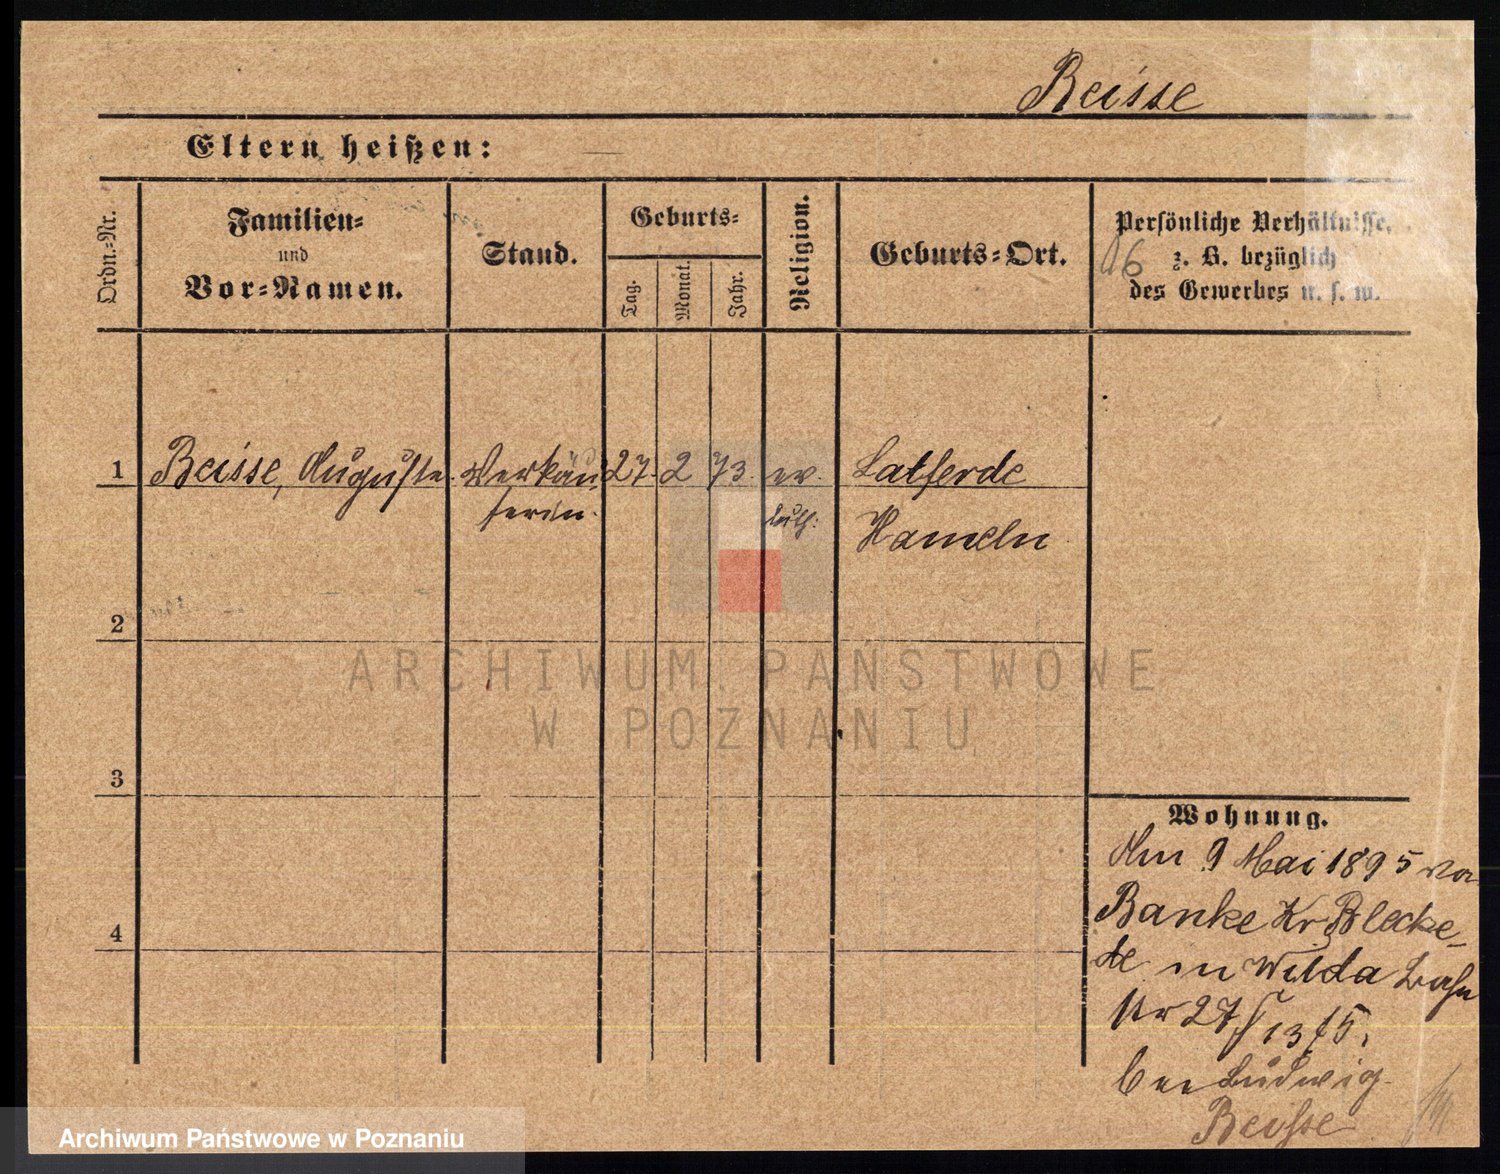 Beisse
Eltern heißen: —
Ordn.-Nr.
Familien-
und
Vor-Namen.
Stand.
Geburts-
Tag.
Monat.
Jahr.
Religion.
Geburts-Ort.
Persönliche Verhältnisse,
z. B. bezüglich
des Gewerbes u. s. w.
1 Beisse, Auguste Verkäu- 27. 2 73. ev. Latferde
ferin. luth: Hameln
2
3
4
Wohnung.
Am 9 Mai 1895 von
Banke Kr Blecke-
de in Wilda
Nr 27 13/5.
bei Ludwig
Beisse
ARCHIWUM PAŃSTWOWE
W POZNANIU
Archiwum Państwowe w Poznaniu